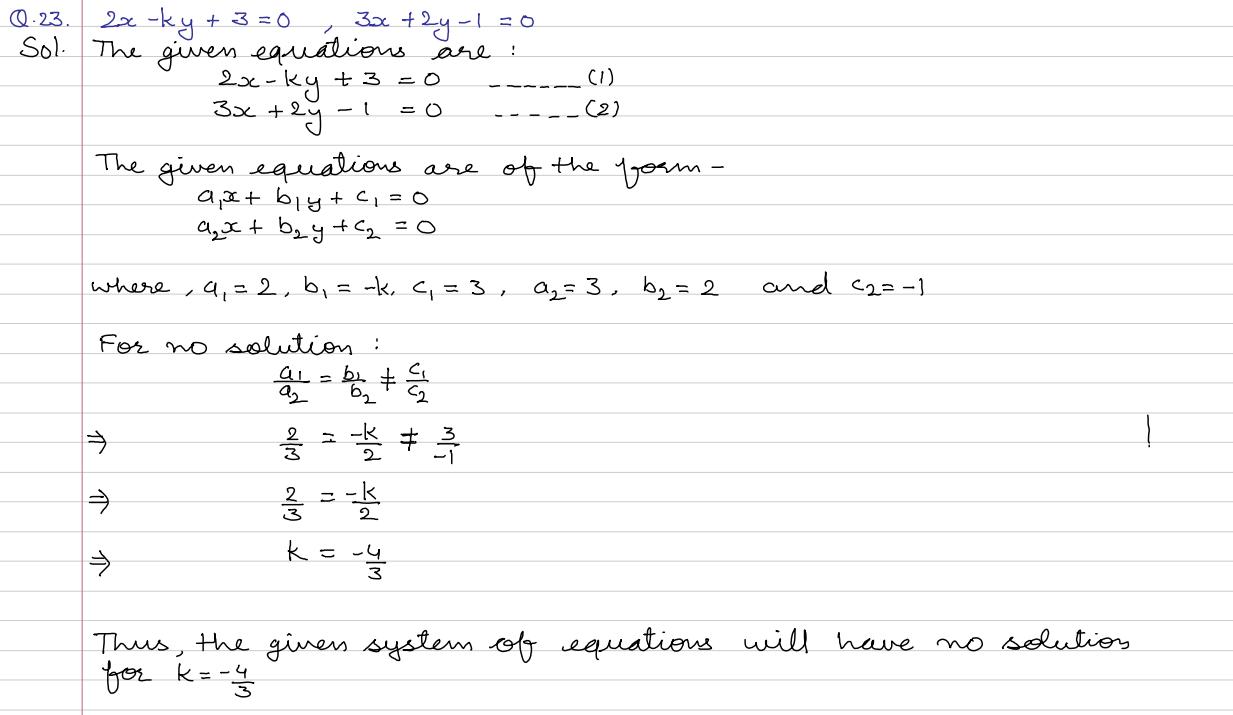 Q.23. 2x - ky + 3 = 0 , 3x + 2y - 1 = 0
Sol. The given equations are :
2x - ky + 3 = 0 ------ (1)
3x + 2y - 1 = 0 ----- (2)
The given equations are of the form -
a₁x + b₁y + c₁ = 0
a₂x + b₂y + c₂ = 0
where, a₁ = 2, b₁ = -k, c₁ = 3, a₂ = 3, b₂ = 2 and c₂ = -1
For no solution :
a₁/a₂ = b₁/b₂ ≠ c₁/c₂
⇒ 2/3 = -k/2 ≠ 3/-1
⇒ 2/3 = -k/2
⇒ k = -4/3
Thus, the given system of equations will have no solution
for k = -4/3